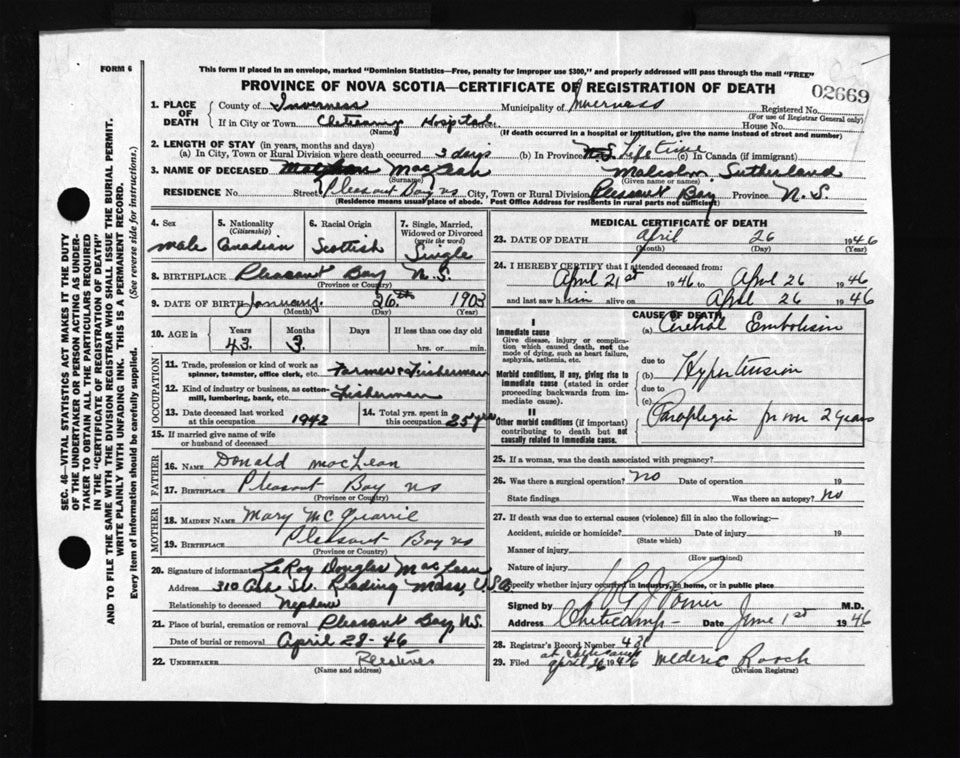 This form if placed in an envelope, marked "Dominion Statistics—Free, penalty for improper use $300," and properly addressed will pass through the mail "FREE"
FORM 6
PROVINCE OF NOVA SCOTIA—CERTIFICATE OF REGISTRATION OF DEATH
02669
1. PLACE OF DEATH
County of Inverness Municipality of Inverness Registered No.
(For use of Registrar General only)
If in City or Town Hospital House No.
(Name) (If death occurred in a hospital or institution, give the name instead of street and number)
2. LENGTH OF STAY (in years, months and days)
(a) In City, Town or Rural Division where death occurred 3 days (b) In Province N.S. Lifetime (c) In Canada (if immigrant)
3. NAME OF DECEASED Malcolm Sutherland
(Surname) (Given name or names)
RESIDENCE No. Street Pleasant Bay NS City, Town or Rural Division Pleasant Bay Province N.S.
(Residence means usual place of abode. Post Office Address for residents in rural parts not sufficient)
4. Sex
male
5. Nationality
(Citizenship)
Canadian
6. Racial Origin
Scottish
7. Single, Married, Widowed or Divorced
(write the word)
Single
8. BIRTHPLACE Pleasant Bay N.S.
(Province or Country)
9. DATE OF BIRTH January 26th 1903
(Month) (Day) (Year)
10. AGE in Years Months Days If less than one day old
43. 3. hrs. or min.
OCCUPATION
11. Trade, profession or kind of work as spinner, teamster, office clerk, etc. Farmer & Fisherman
12. Kind of industry or business, as cotton-mill, lumbering, bank, etc. Fisherman
13. Date deceased last worked at this occupation 1942
14. Total yrs. spent in this occupation 25 yrs
15. If married give name of wife or husband of deceased
FATHER
16. NAME Donald MacLean
17. BIRTHPLACE Pleasant Bay NS
(Province or Country)
MOTHER
18. MAIDEN NAME Mary McQuarrie
19. BIRTHPLACE Pleasant Bay NS
(Province or Country)
20. Signature of informant LeRoy Douglas MacLean
Address 310 Ash St. Reading Mass, U.S.A.
Relationship to deceased Nephew
21. Place of burial, cremation or removal Pleasant Bay, N.S.
Date of burial or removal April 28-46
22. UNDERTAKER Relatives
(Name and address)
MEDICAL CERTIFICATE OF DEATH
23. DATE OF DEATH April 26 1946
(Month) (Day)
24. I HEREBY CERTIFY that I attended deceased from:
April 21st 1946 to April 26 1946
and last saw him alive on April 26 1946
CAUSE OF DEATH
I
Immediate cause
Give disease, injury or complication which caused death, not the mode of dying, such as heart failure, asphyxia, asthenia, etc.
(a) Embolism
due to
Morbid conditions, if any, giving rise to immediate cause (stated in order proceeding backwards from immediate cause).
(b) Hypertension
due to
(c)
II
Other morbid conditions (if important) contributing to death but not causally related to immediate cause.
Paraplegia for over 2 years
25. If a woman, was the death associated with pregnancy?
26. Was there a surgical operation? No Date of operation 19
State findings Was there an autopsy? No
27. If death was due to external causes (violence) fill in also the following:—
Accident, suicide or homicide? Date of injury 19
(State which)
Manner of injury
(How sustained)
Nature of injury
Specify whether injury occurred in industry, in home, or in public place
Signed by M.D.
Address Cheticamp— Date June 1st 1946
28. Registrar's Record Number 43
29. Filed at Cheticamp April 26 1946 Mederic Roach
(Division Registrar)
SEC. 46—VITAL STATISTICS ACT MAKES IT THE DUTY
OF THE UNDERTAKER OR PERSON ACTING AS UNDER-
TAKER TO OBTAIN ALL THE PARTICULARS REQUIRED
IN THE "CERTIFICATE OF REGISTRATION OF DEATH"
AND TO FILE THE SAME WITH THE DIVISION REGISTRAR WHO SHALL ISSUE THE BURIAL PERMIT.
WRITE PLAINLY WITH UNFADING INK. THIS IS A PERMANENT RECORD.
Every item of information should be carefully supplied. (See reverse side for instructions.)